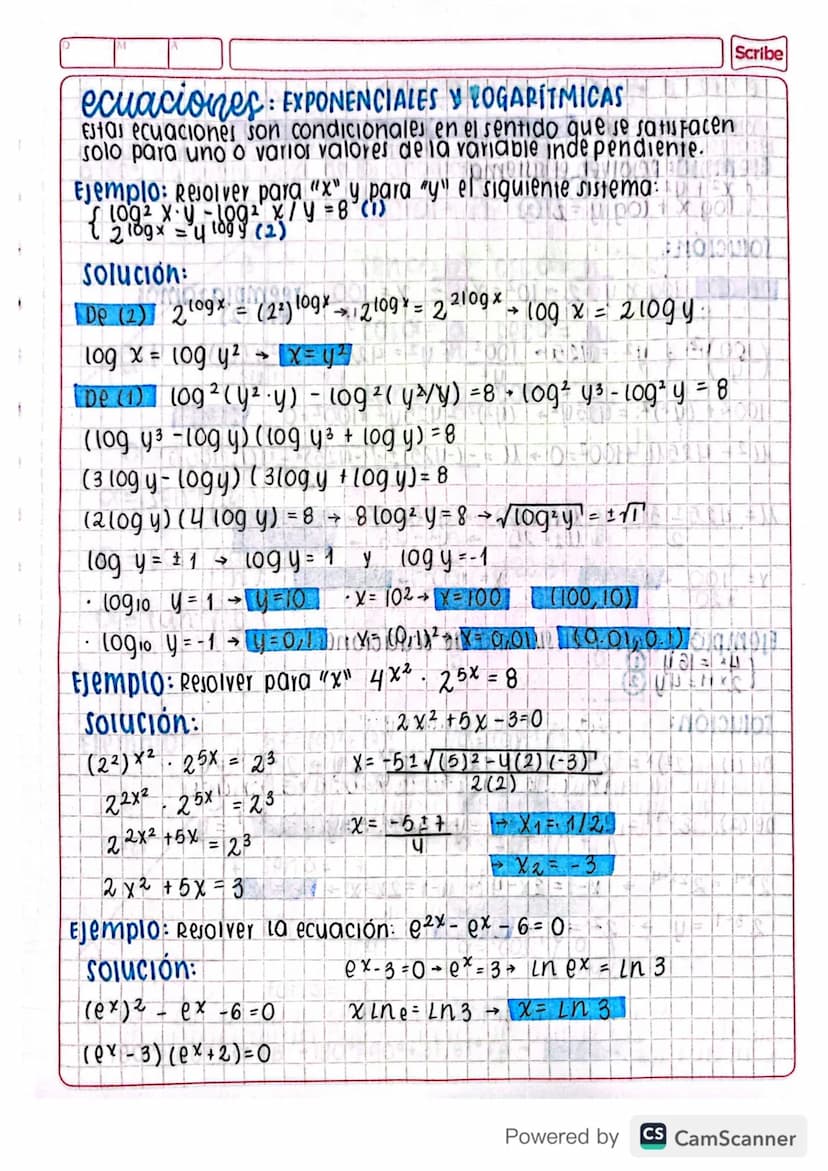 D M A Scribe
ecuaciones: EXPONENCIALES Y LOGARÍTMICAS
Estas ecuaciones son condicionales en el sentido que se satisfacen
solo para uno o varios valores de la variable independiente.
Ejemplo: Resolver para "x" y para "y" el siguiente sistema:
{ log² x·y - log² x/y = 8 (1)
{ 2^log x = 4^log y (2)
solución:
De (2) 2^log x = (2²)^log x → 2^log x = 2^2log x → log x = 2 log y
log x = log y² → x = y²
De (1) log²(y²·y) - log²(y²/y) = 8 → log² y³ - log² y = 8
(log y³ - log y)(log y³ + log y) = 8
(3 log y - log y)(3 log y + log y) = 8
(2 log y)(4 log y) = 8 → 8 log² y = 8 → √log² y = ±√1
log y = ±1 → log y = 1 y log y = -1
· log₁₀ y = 1 → y = 10 · x = 10² → x = 100 (100, 10)
· log₁₀ y = -1 → y = 0,1 x = (0,1)² → x = 0,01 (0.01, 0.1)
Ejemplo: Resolver para "x" 4^x² · 2^5x = 8
solución: 2x² + 5x - 3 = 0
(2²)^x² · 2^5x = 2³ x = -5 ± √(5)² - 4(2)(-3) / 2(2)
2^2x² · 2^5x = 2³
2^2x² + 5x = 2³ x = -5 ± 7 / 4 → x₁ = 1/2
→ x₂ = -3
2x² + 5x = 3
Ejemplo: Resolver la ecuación: e^2x - e^x - 6 = 0
solución: e^x - 3 = 0 → e^x = 3 → Ln e^x = Ln 3
(e^x)² - e^x - 6 = 0 x Ln e = Ln 3 → x = Ln 3
(e^x - 3)(e^x + 2) = 0
Powered by CS CamScanner